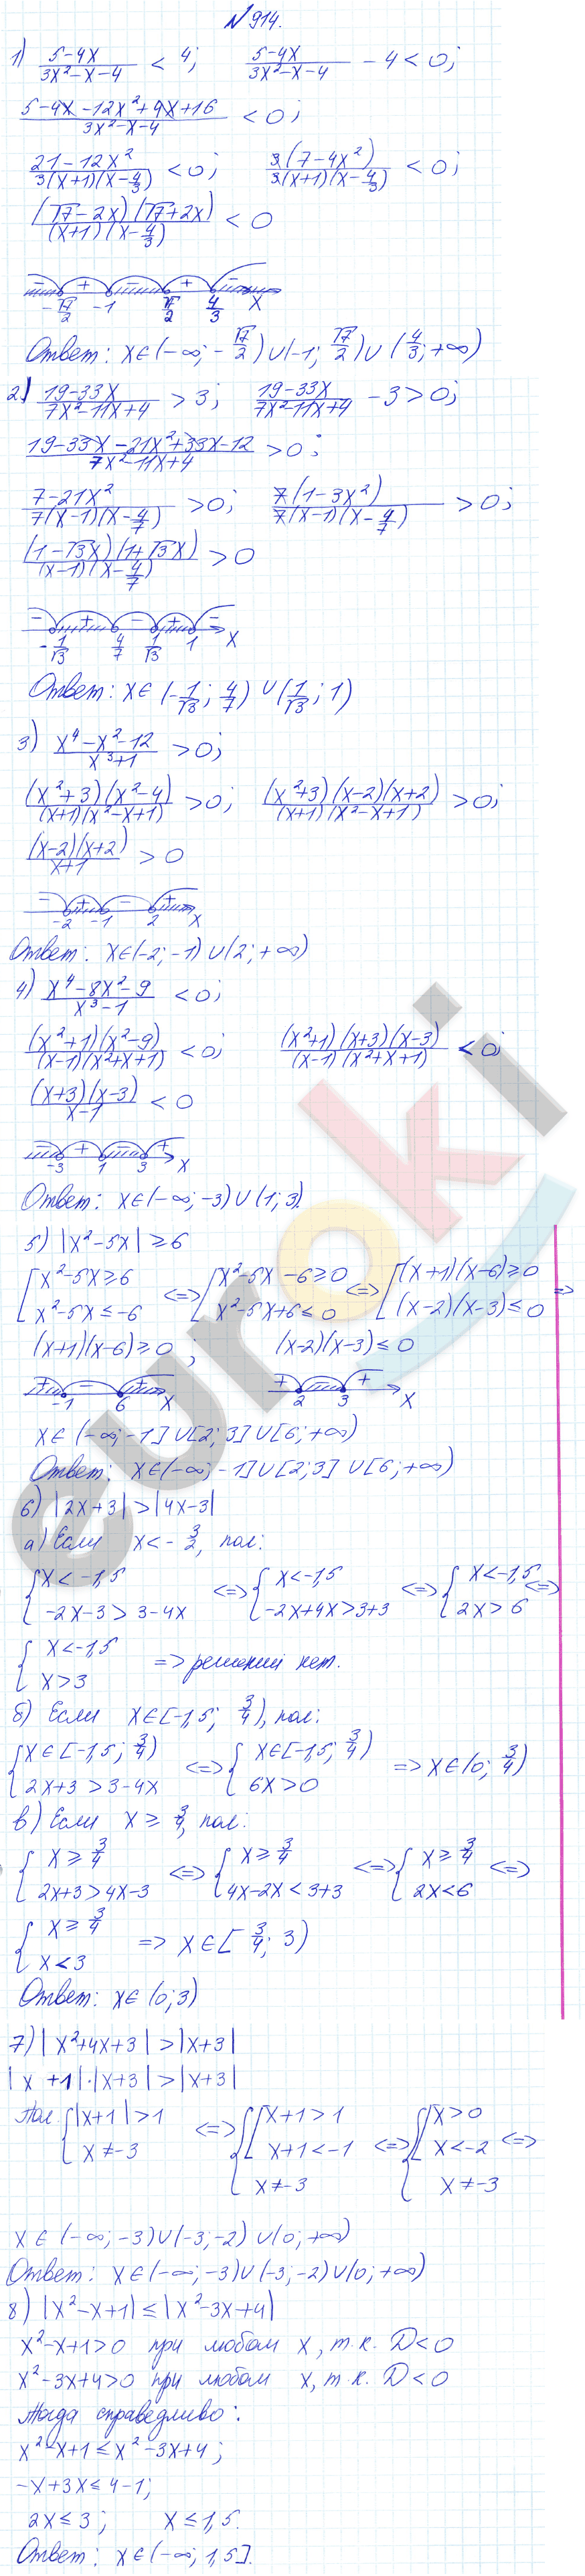 №914.
1) (5-4x)/(3x²-x-4) < 4; (5-4x)/(3x²-x-4) - 4 < 0;
(5-4x-12x²+4x+16)/(3x²-x-4) < 0;
(21-12x²)/(3(x+1)(x-4/3)) < 0; 3(7-4x²)/(3(x+1)(x-4/3)) < 0;
(√7-2x)(√7+2x)/((x+1)(x-4/3)) < 0
- + - + -
-√7/2 -1 √7/2 4/3 x
Ответ: x∈(-∞; -√7/2)∪(-1; √7/2)∪(4/3; +∞)
2) (19-33x)/(7x²-11x+4) > 3; (19-33x)/(7x²-11x+4) - 3 > 0;
(19-33x-21x²+33x-12)/(7x²-11x+4) > 0;
(7-21x²)/(7(x-1)(x-4/7)) > 0; 7(1-3x²)/(7(x-1)(x-4/7)) > 0;
(1-√3x)(1+√3x)/((x-1)(x-4/7)) > 0
- + - + -
-1/√3 4/7 1/√3 1 x
Ответ: x∈(-1/√3; 4/7)∪(1/√3; 1)
3) (x⁴-x²-12)/(x³+1) > 0;
(x²+3)(x²-4)/((x+1)(x²-x+1)) > 0; (x²+3)(x-2)(x+2)/((x+1)(x²-x+1)) > 0;
(x-2)(x+2)/(x+1) > 0
- + - +
-2 -1 2 x
Ответ: x∈(-2; -1)∪(2; +∞)
4) (x⁴-8x²-9)/(x³-1) < 0;
(x²+1)(x²-9)/((x-1)(x²+x+1)) < 0; (x²+1)(x+3)(x-3)/((x-1)(x²+x+1)) < 0;
(x+3)(x-3)/(x-1) < 0
- + - +
-3 1 3 x
Ответ: x∈(-∞; -3)∪(1; 3).
5) |x²-5x| ≥ 6
[x²-5x≥6 <=> [x²-5x-6≥0 <=> [(x+1)(x-6)≥0 =>
x²-5x≤-6 x²-5x+6≤0 (x-2)(x-3)≤0
(x+1)(x-6)≥0; (x-2)(x-3)≤0
+ - + + - +
-1 6 x 2 3 x
x∈(-∞; -1]∪[2; 3]∪[6; +∞)
Ответ: x∈(-∞; -1]∪[2; 3]∪[6; +∞)
6) |2x+3| > |4x-3|
а) Если x < -3/2, пол:
{x<-1,5 <=> {x<-1,5 <=> {x<-1,5 <=>
-2x-3>3-4x -2x+4x>3+3 2x>6
{x<-1,5 => решений нет.
x>3
б) Если x∈[-1,5; 3/4), пол:
{x∈[-1,5; 3/4) <=> {x∈[-1,5; 3/4) => x∈(0; 3/4)
2x+3>3-4x 6x>0
в) Если x ≥ 3/4, пол:
{x≥3/4 <=> {x≥3/4 <=> {x≥3/4 <=>
2x+3>4x-3 4x-2x<3+3 2x<6
{x≥3/4 => x∈[3/4; 3)
x<3
Ответ: x∈(0; 3)
7) |x²+4x+3| > |x+3|
|x+1|·|x+3| > |x+3|
Пол. {|x+1|>1 <=> {[x+1>1 <=> {[x>0 <=>
x≠-3 x+1<-1 x<-2
x≠-3 x≠-3
x∈(-∞; -3)∪(-3; -2)∪(0; +∞)
Ответ: x∈(-∞; -3)∪(-3; -2)∪(0; +∞)
8) |x²-x+1| ≤ |x²-3x+4|
x²-x+1>0 при любом x, т.к. D<0
x²-3x+4>0 при любом x, т.к. D<0
Тогда справедливо:
x²-x+1 ≤ x²-3x+4;
-x+3x ≤ 4-1;
2x ≤ 3; x ≤ 1,5.
Ответ: x∈(-∞; 1,5].
euroki